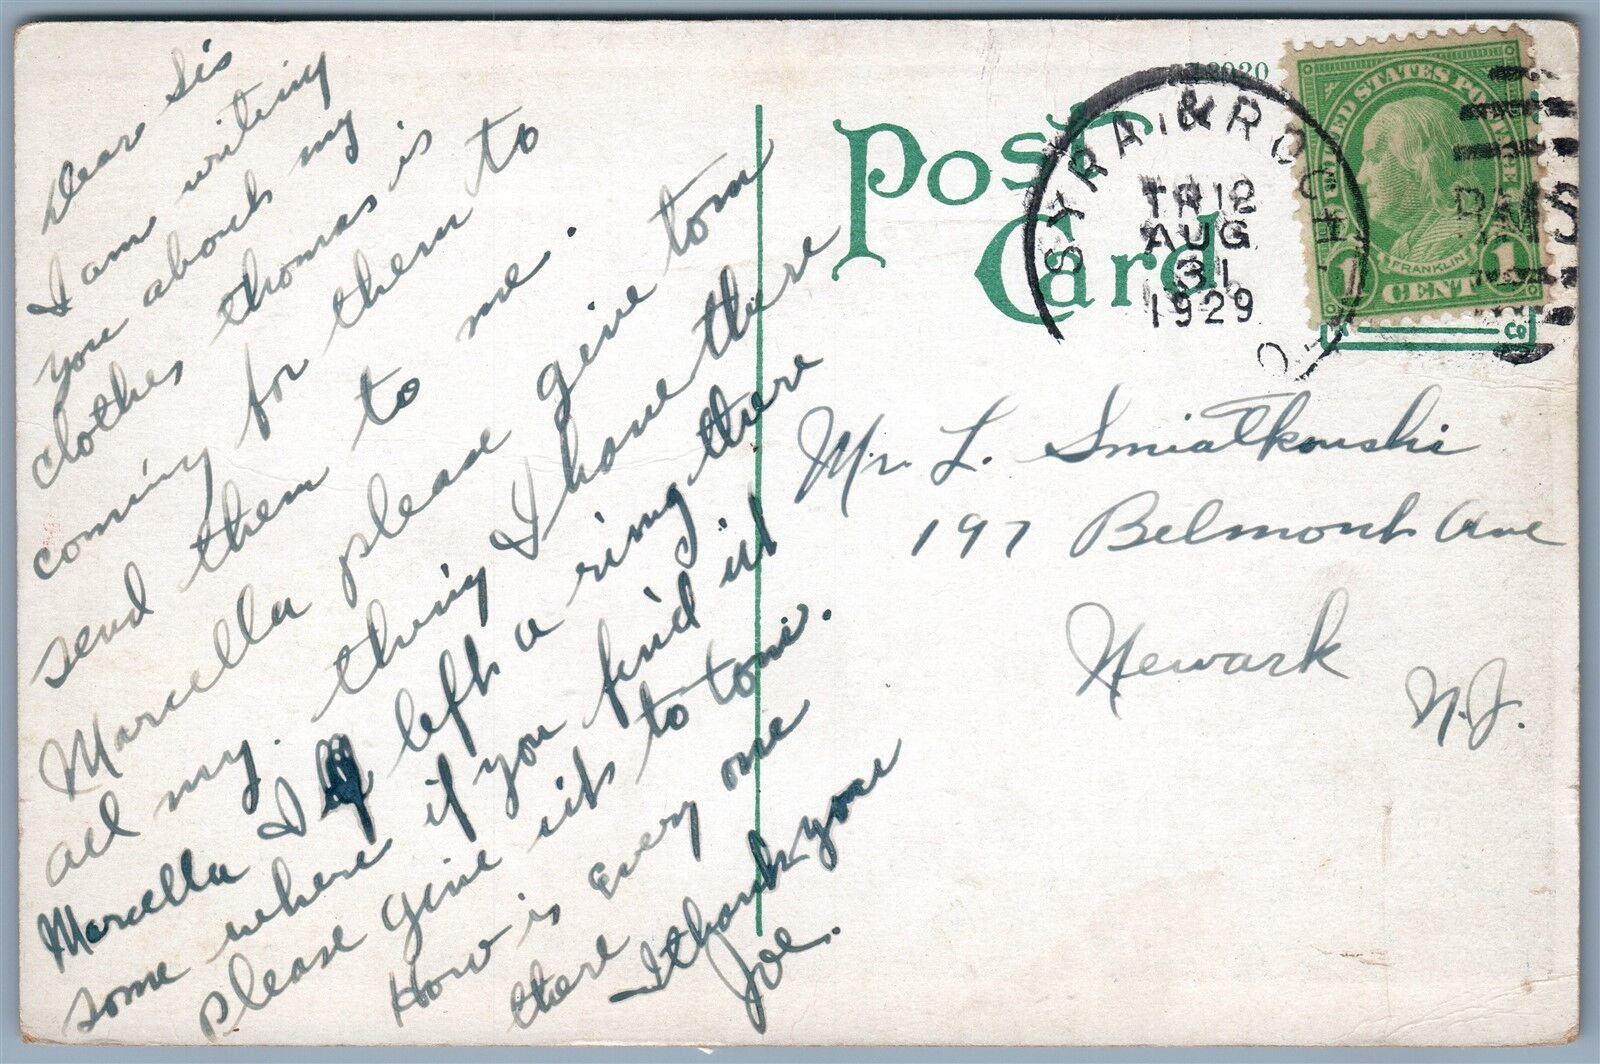 Dear Sis
I am writing
you about my
clothes thomas is
coming for them to
send them to me.
Marcella please give tom
all my. thing I have there
Marcella I left a ring there
some where if you find it
please give it to tom.
How is every one
there
I thank you
Joe.
18020
Post
Card
SYRA. & ROCH.
TR 12
AUG
31
1929
RMS
UNITED STATES POSTAGE
FRANKLIN
1 CENT 1
Co
Mr. L. Smiatkowski
197 Belmont Ave
Newark
N.J.